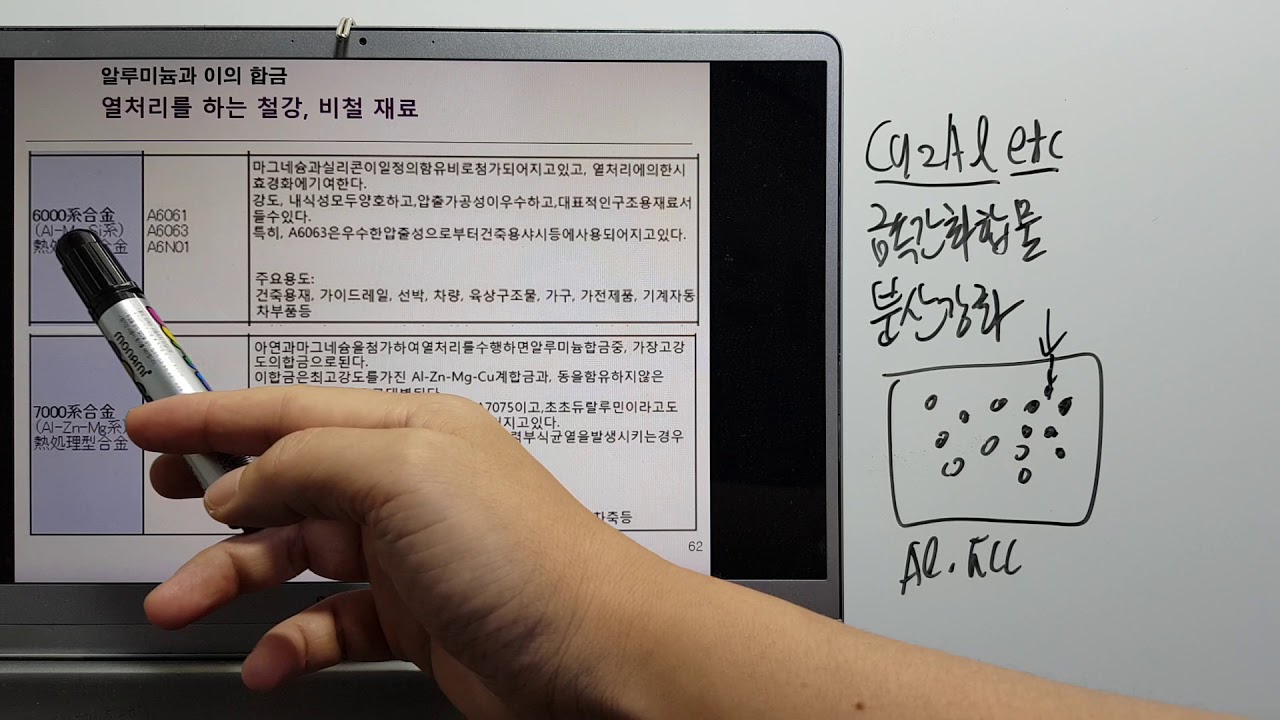 알루미늄과 이의 합금
열처리를 하는 철강, 비철 재료
6000系合金
(Al-M Si系)
熱処 合金
A6061
A6063
A6N01
마그네슘과실리콘이일정의함유비로첨가되어지고있고, 열처리에의한시
효경화에기여한다.
강도, 내식성모두양호하고,압출가공성이우수하고,대표적인구조용재료서
들수있다.
특히, A6063은우수한압출성으로부터건축용샤시등에사용되어지고있다.
주요용도:
건축용재, 가이드레일, 선박, 차량, 육상구조물, 가구, 가전제품, 기계자동
차부품등
7000系合金
(Al-Zn-Mg系)
熱処理型合金
아연과마그네슘을첨가하여열처리를수행하면알루미늄합금중, 가장고강
도의합금으로된다.
이합금은최고강도를가진 Al-Zn-Mg-Cu계합금과, 동을함유하지않은
대별된다
A7075이고,초초듀랄루민이라고도
어지고있다.
력부식균열을발생시키는경우
차축등
62
monami
Cu2Al etc
금속간화합물
분산강화
Al. FCC